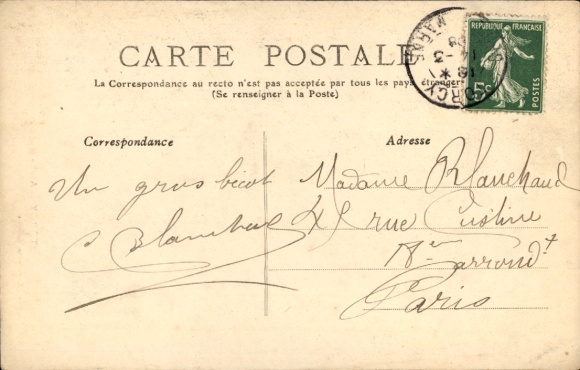 CARTE POSTALE
La Correspondance au recto n'est pas acceptée par tous les pays étrangers
(Se renseigner à la Poste)
REPUBLIQUE FRANÇAISE
POSTES
5c
Correspondance
Adresse
Un gros bicot
C Blanchard
Madame Blanchaud
45 rue Custine
Arrond t
Paris